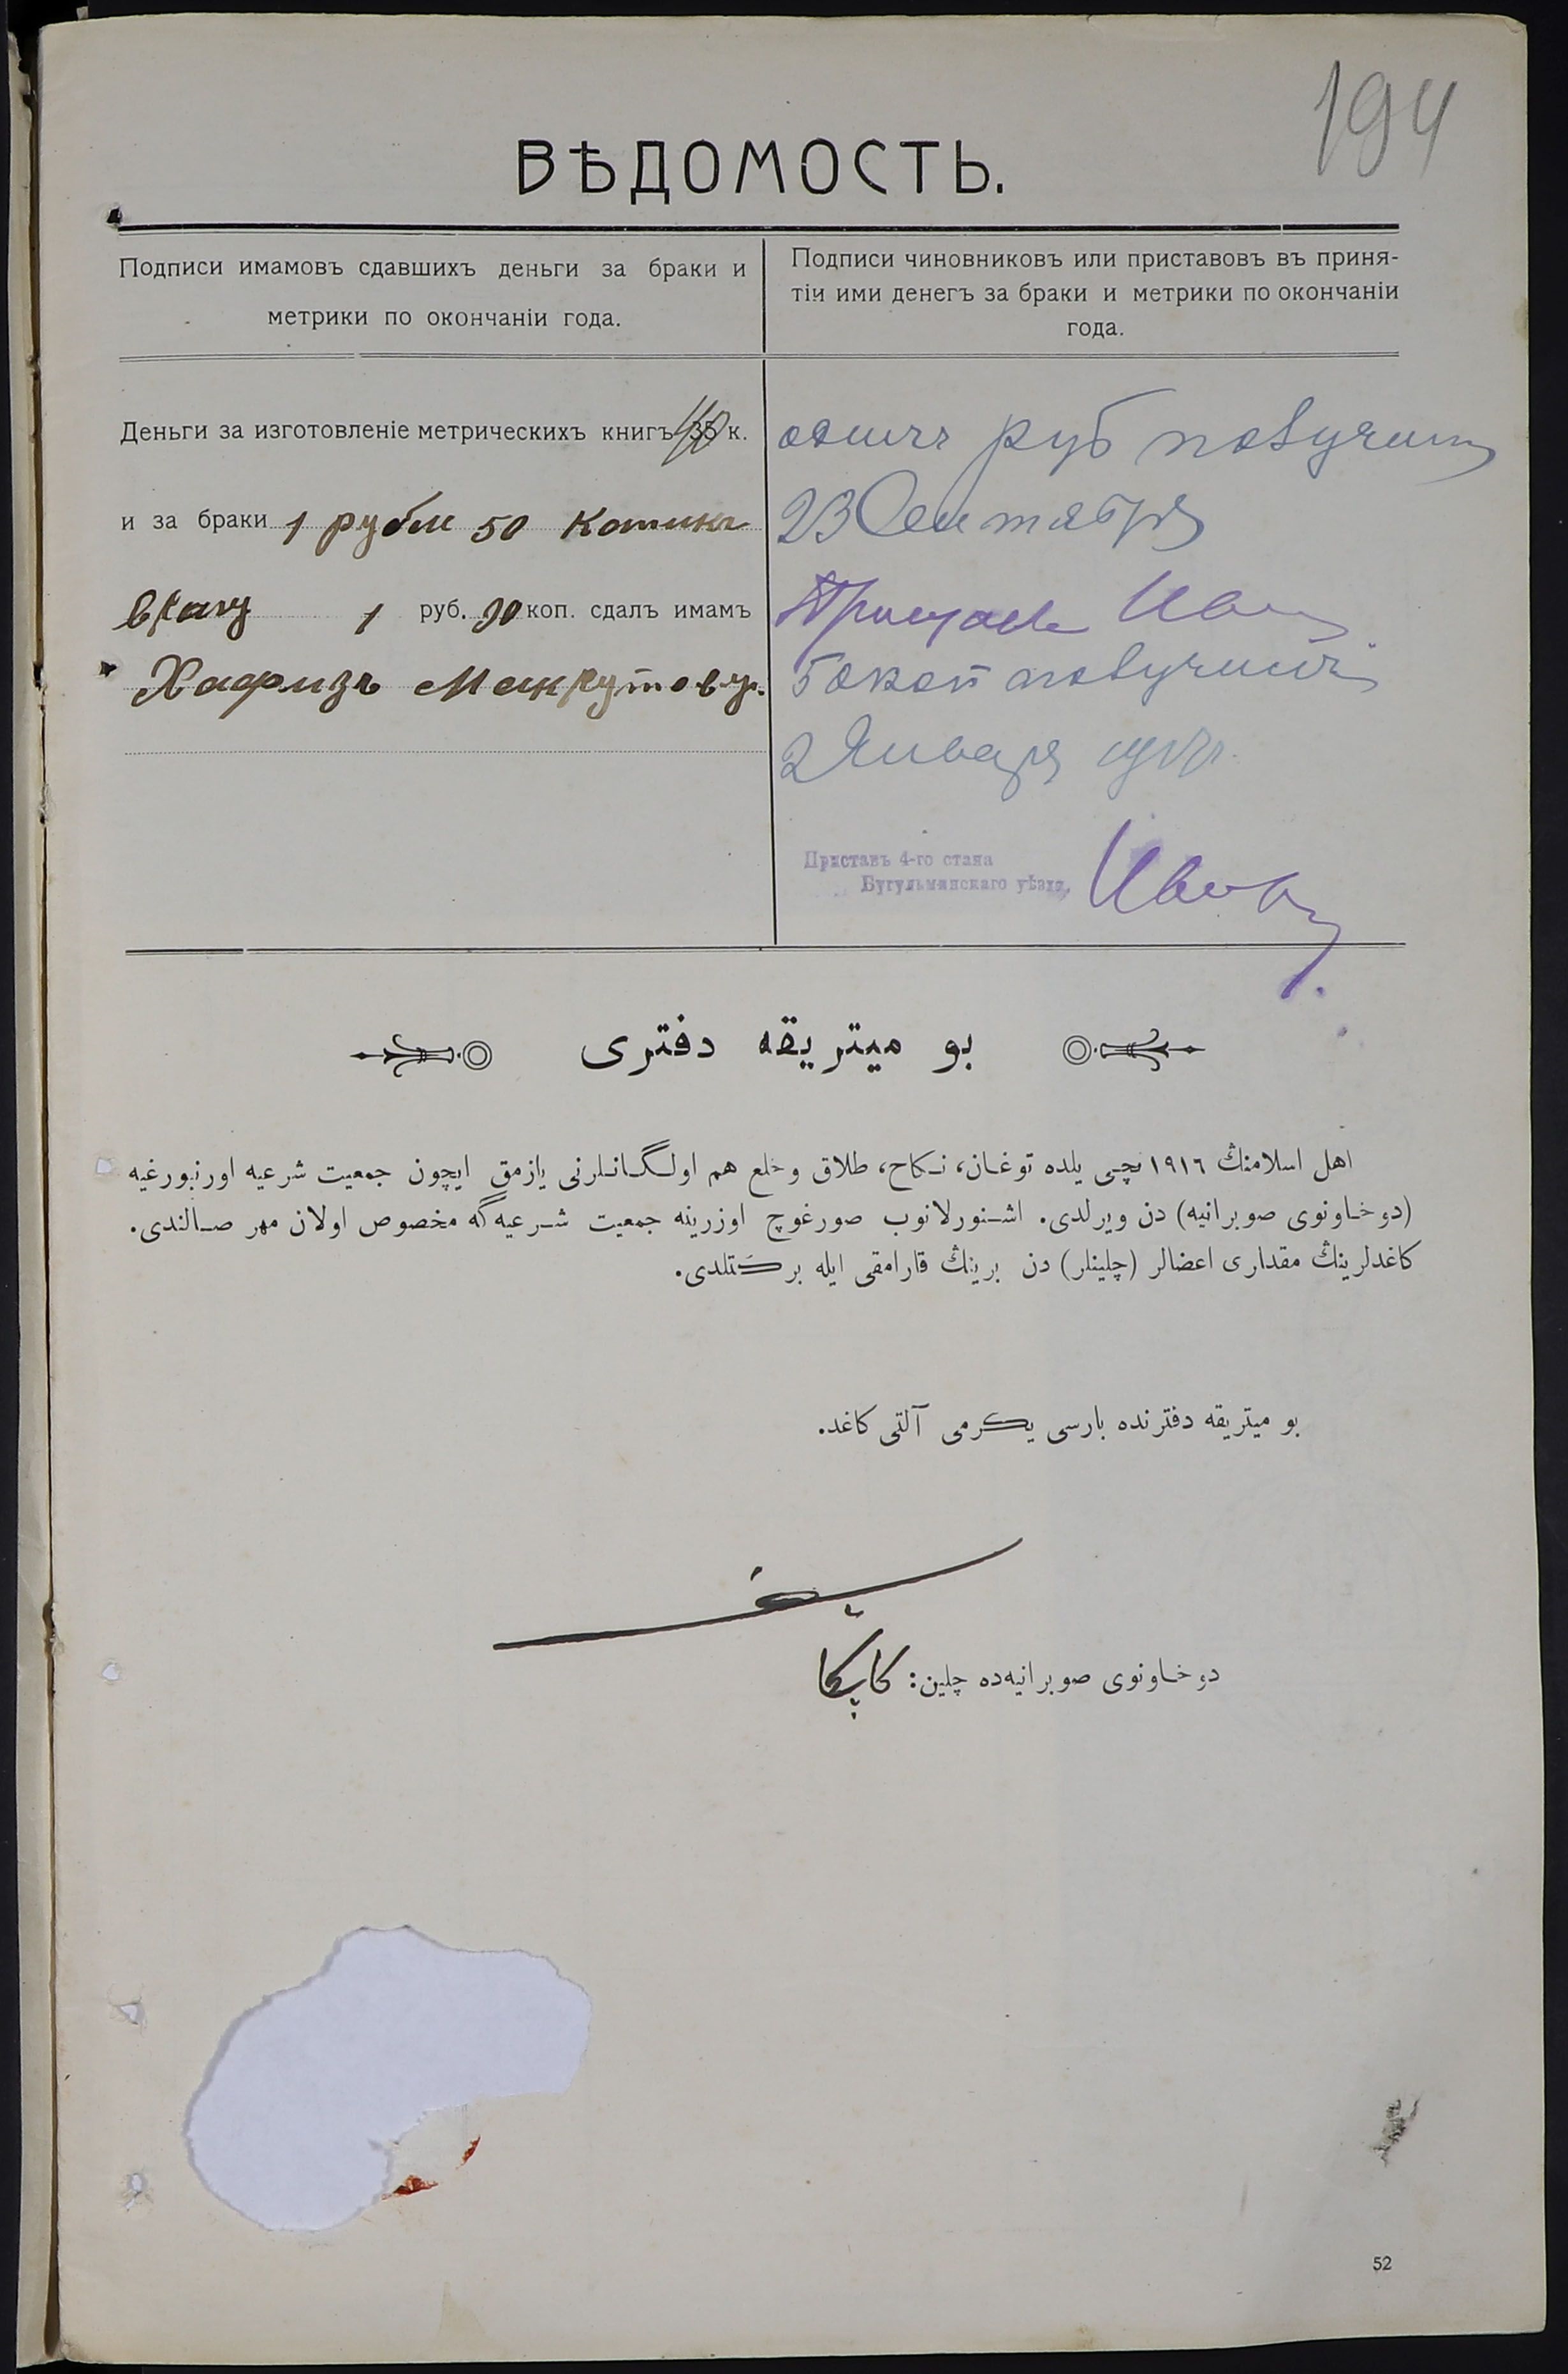 194
ВѢДОМОСТЬ.
Подписи имамовъ сдавшихъ деньги за браки и
метрики по окончаніи года.
Подписи чиновниковъ или приставовъ въ приня-
тіи ими денегъ за браки и метрики по окончаніи
года.
Деньги за изготовленіе метрическихъ книгъ 35 40 к.
и за браки 1 рубли 50 копикъ
1 руб. 90 коп. сдалъ имамъ
Хафизъ
одинъ руб получилъ
23 Сентября
Приставъ
50 коп получилъ
2 Января 1917 г.
Приставъ 4-го стана
Бугульминскаго уѣзда,
بو ميتريقه دفترى
اهل اسلامنڭ ١٩١٦ نچى يلده توغان، نكاح، طلاق وخلع هم اولگانلرنى يازمق ايچون جمعيت شرعيه اورنبورغيه
(دوخاونوى صوبرانيه) دن ويرلدى. اشنورلانوب صورغوچ اوزرينه جمعيت شرعيه‌گه مخصوص اولان مهر صالندى.
كاغدلرينڭ مقدارى اعضالر (چلينلر) دن برينڭ قارامقى ايله بركتلدى.
بو ميتريقه دفترنده بارسى يكرمى آلتى كاغد.
دوخاونوى صوبرانيه‌ده چلين:
52